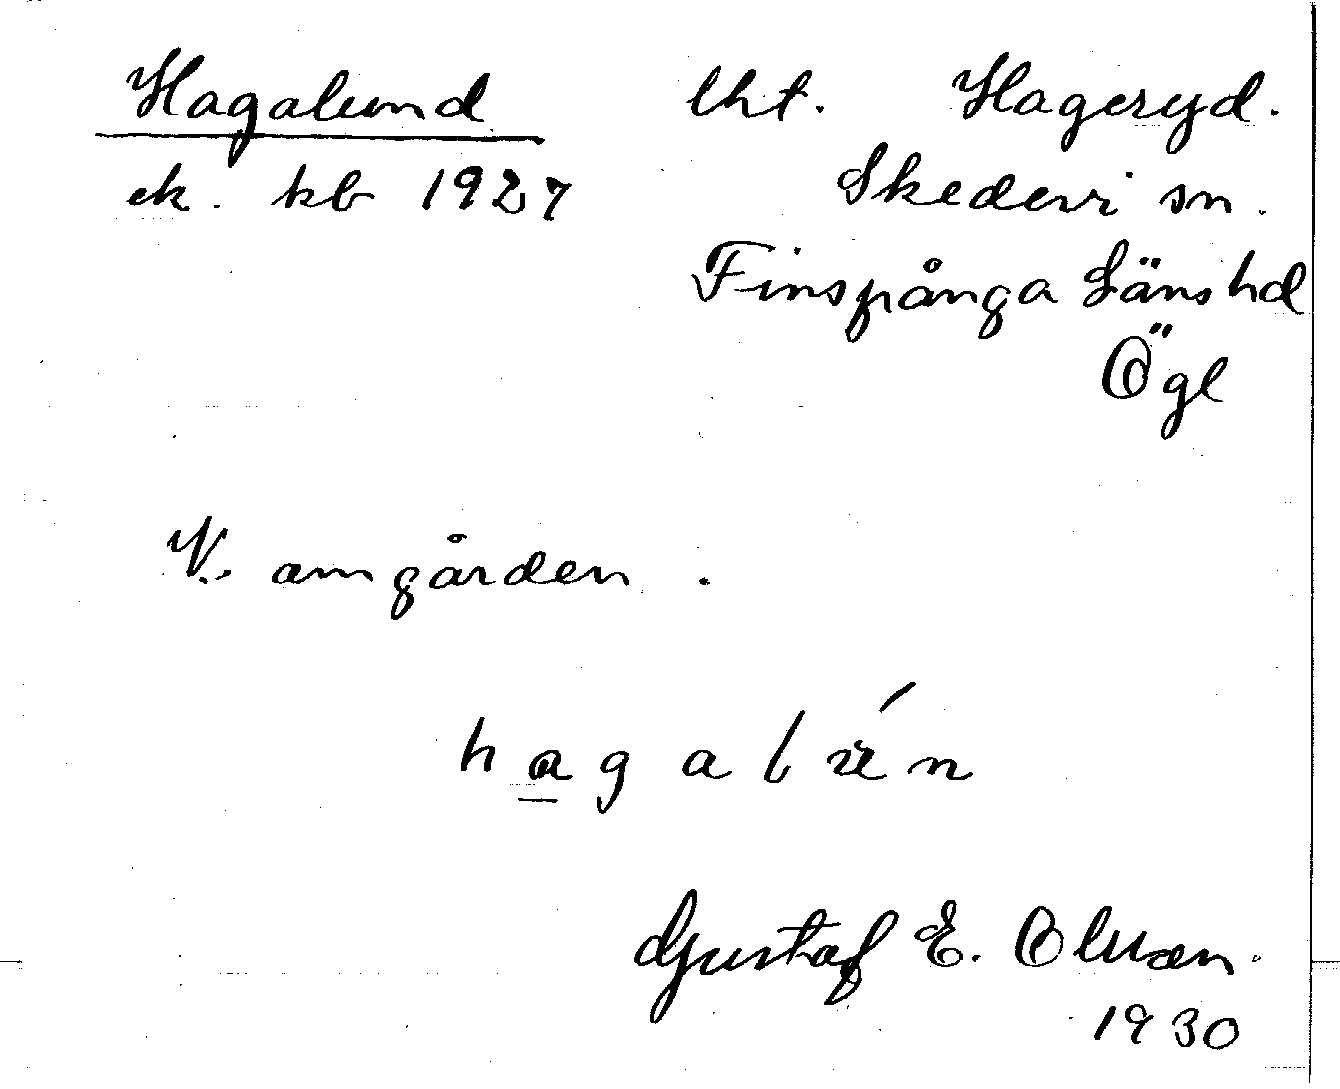 Hagalund lht. Hageryd.
ek. kb 1927 Skedevi sn.
Finspånga Läns hd
Ögl
V. omgården.
hagalún
Gustaf E. Olsson.
1930